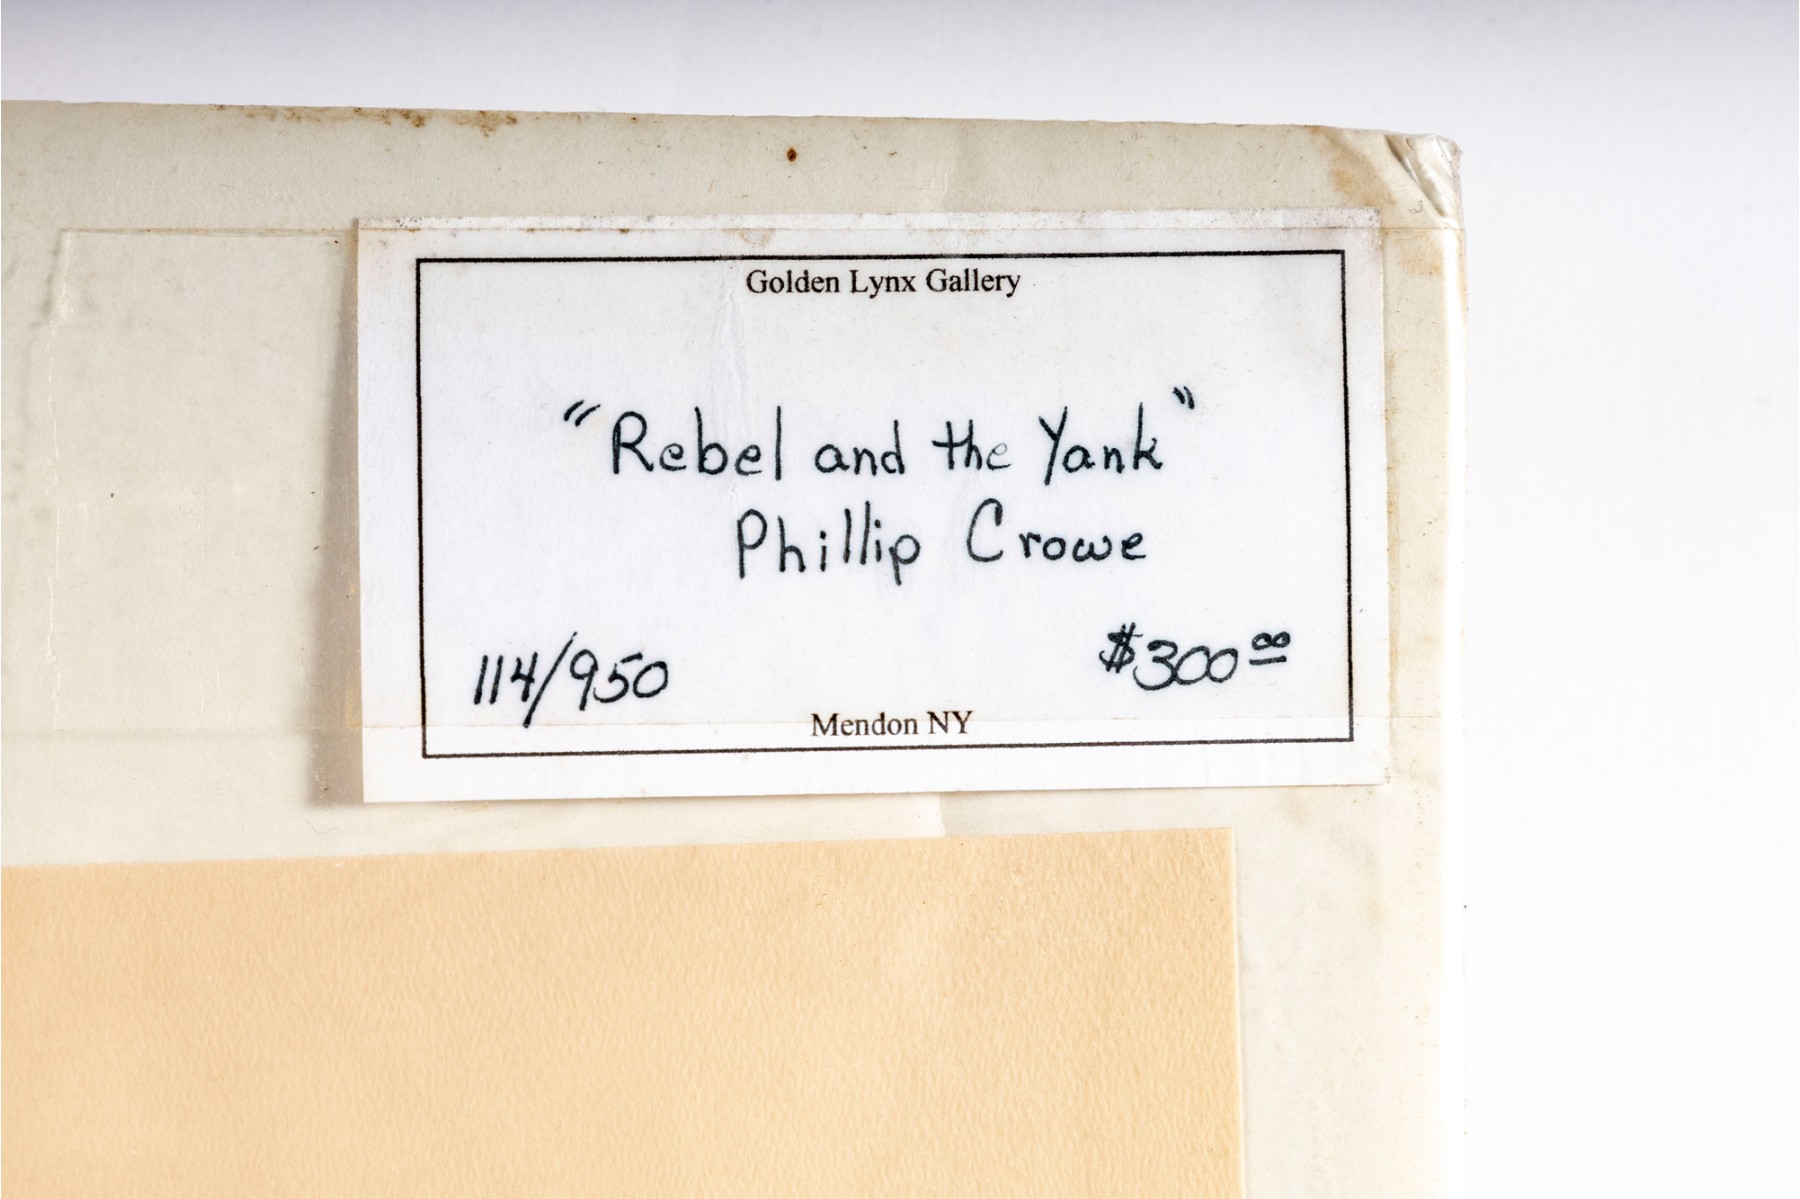 Golden Lynx Gallery
"Rebel and the Yank"
Phillip Crowe
114/950 $300.00
Mendon NY